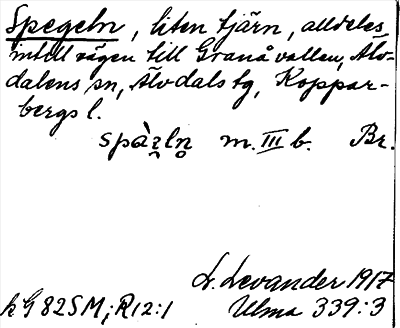 Spegeln, liten tjärn, alldeles
intill vägen till Granåvallen, Älv-
dalens sn, Älvdals tg, Koppar-
bergs l.
spàʒ̥ln̥ m. III b. Br.
L. Levander 1917
kG 82SM; R12:1 Ulma 339:3